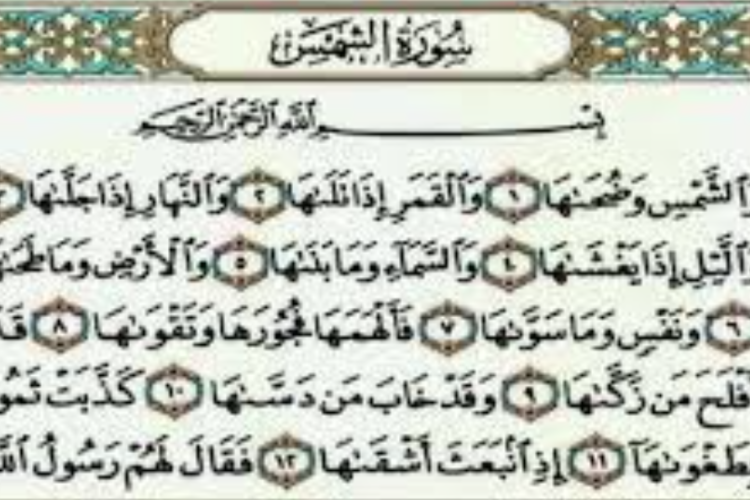 سُورَةُ الشَّمْسِ
بِسْمِ اللَّهِ الرَّحْمَٰنِ الرَّحِيمِ
الشَّمْسِ وَضُحَىٰهَا ١ وَٱلْقَمَرِ إِذَا تَلَىٰهَا ٢ وَٱلنَّهَارِ إِذَا جَلَّىٰهَا ٣
ٱلَّيْلِ إِذَا يَغْشَىٰهَا ٤ وَٱلسَّمَآءِ وَمَا بَنَىٰهَا ٥ وَٱلْأَرْضِ وَمَا طَحَىٰهَا
٦ وَنَفْسٍ وَمَا سَوَّىٰهَا ٧ فَأَلْهَمَهَا فُجُورَهَا وَتَقْوَىٰهَا ٨ قَدْ
فْلَحَ مَن زَكَّىٰهَا ٩ وَقَدْ خَابَ مَن دَسَّىٰهَا ١٠ كَذَّبَتْ ثَمُو
طَغْوَىٰهَآ ١١ إِذِ ٱنۢبَعَثَ أَشْقَىٰهَا ١٢ فَقَالَ لَهُمْ رَسُولُ ٱللَّ